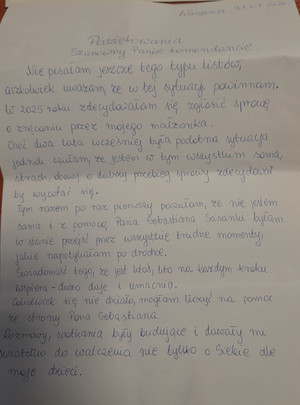 Warszawa
Podziękowania
Szanowny Panie komendancie
Nie pisałam jeszcze tego typu listów,
aczkolwiek uważam, że w tej sytuacji powinnam.
W 2025 roku zdecydowałam się zgłosić sprawę
o znęcaniu przez mojego małżonka.
Choć dwa lata wcześniej była podobna sytuacja
jednak czułam, że jestem w tym wszystkim sama,
strach, obawy o dalszy przebieg sprawy zdecydował
by wycofać się.
Tym razem po raz pierwszy poczułam, że nie jestem
sama i z pomocą Pana Sebastiana byłam
w stanie przejść przez wszystkie trudne momenty
jakie napotykałam po drodze.
Świadomość tego, że jest ktoś, kto na każdym kroku
wspiera - dużo daje i umacnia.
Cokolwiek się nie działo, mogłam liczyć na pomoc
ze strony Pana Sebastiana.
Rozmowy, spotkania były budujące i dawały mi
światełko do walczenia nie tylko o Siebie ale
moje dzieci.